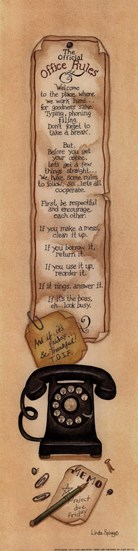 The
Official
Office Rules
Welcome
to the place where
we work hard...
for goodness sake.
Typing, phoning
filing.
Don't forget to
take a break.
But...
Before you get
your coffee...
Lets get a few
things straight...
We have some rules
to follow, so...lets all
cooperate.
First, be respectful
and encourage
each other.
If you make a mess,
clean it up.
If you borrow it,
return it.
If you use it up,
reorder it.
If it rings, answer it.
If it's the boss,
eh...look busy.
And if it's
Friday...
Be thankful!
T.G.I.F.
MEMO
Project
due
Friday
Linda Spivey